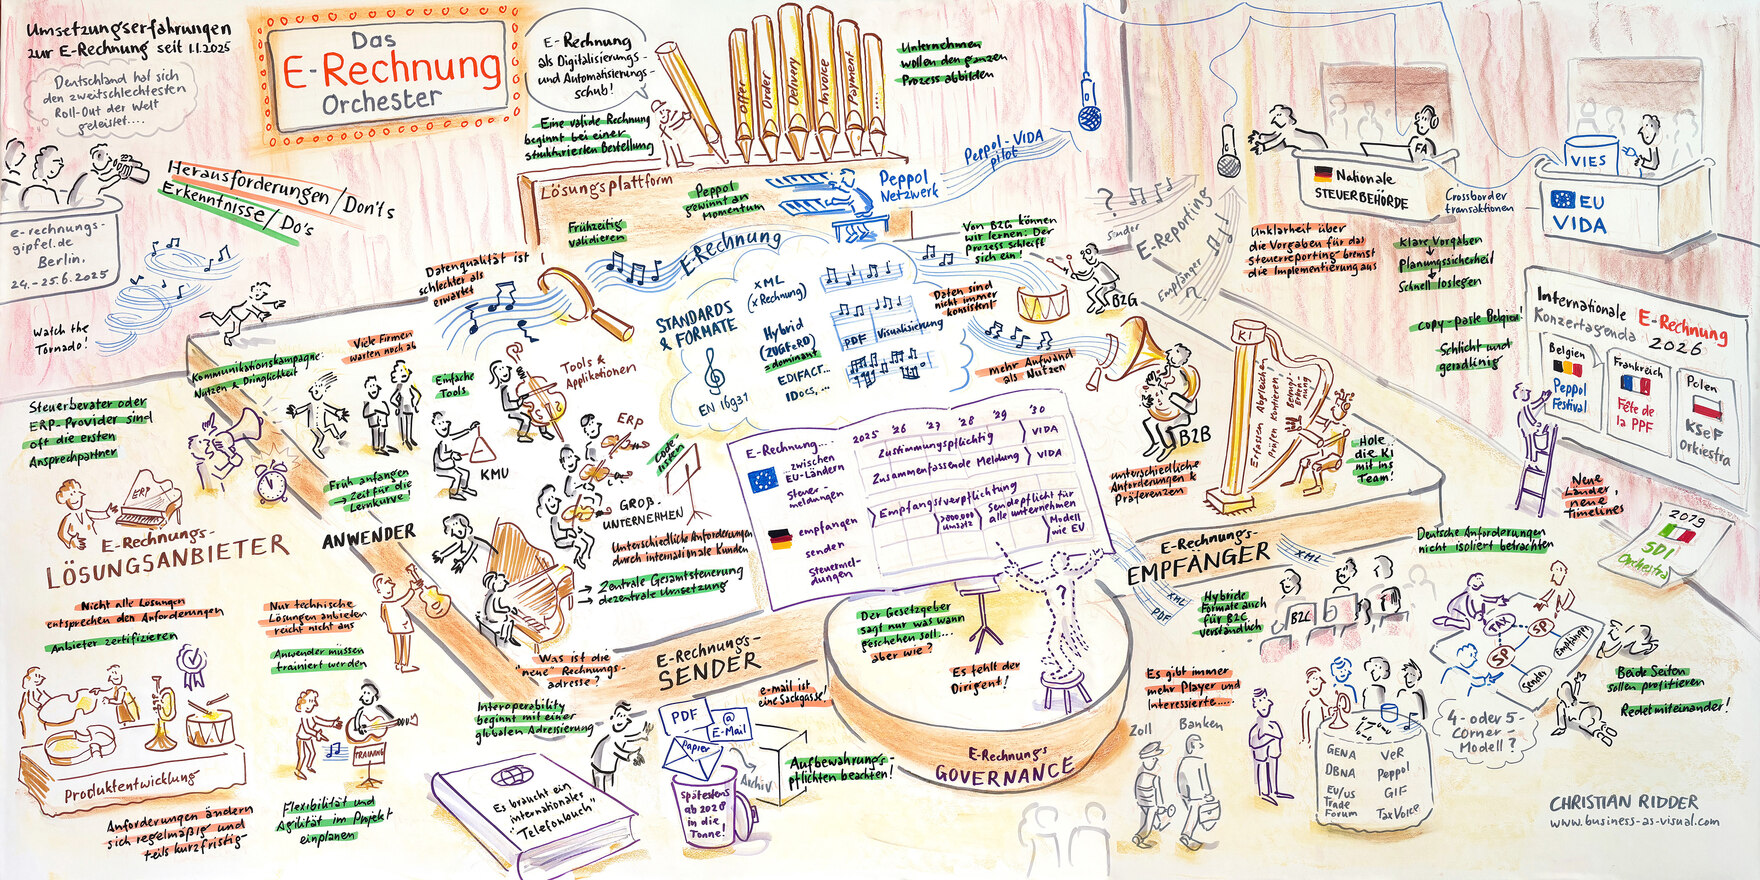 Umsetzungserfahrungen
zur E-Rechnung seit 1.1.2025
Deutschland hat sich
den zweitschlechtesten
Roll-Out der Welt
geleistet....
Das
E-Rechnung
Orchester
E-Rechnung
als Digitalisierungs-
und Automatisierungs-
schub!
Eine valide Rechnung
beginnt bei einer
strukturierten Bestellung
Offer
Order
Delivery
Invoice
Payment
...
Unternehmen
wollen den ganzen
Prozess abbilden
Herausforderungen/Don'ts
Erkenntnisse/Do's
e-rechnungs-
gipfel.de
Berlin,
24.-25.6.2025
Watch the
Tornado!
Lösungsplattform
Frühzeitig
validieren
Peppol
gewinnt an
Momentum
Peppol
Netzwerk
Peppol-VIDA
pilot
Von B2G können
wir lernen: Der
Prozess schleift
sich ein!
B2G
?
Sender
E-Reporting
Empfänger
?
FA
Nationale
STEUERBEHÖRDE
Crossborder
transaktionen
VIES
EU
VIDA
Unklarheit über
die Vorgaben für das
Steuerreporting bremst
die Implementierung aus
Klare Vorgaben
Planungssicherheit
Schnell loslegen
copy-paste Belgien!
Schlicht und
geradlinig
Internationale E-Rechnung
Konzertagenda 2026
Belgien
Peppol
Festival
Frankreich
Fête de
la PPF
Polen
KSeF
Orkiestra
Neue
Länder,
neue
Timelines
2019
SDI
Orchestra
Datenqualität ist
schlechter als
erwartet
E-Rechnung
STANDARDS
& FORMATE
EN 16931
XML
(XRechnung)
Hybrid
(ZUGFeRD)
=dominant
EDIFACT...
IDocs,...
PDF Visualisierung
Daten sind
nicht immer
konsistent
mehr Aufwand
als Nutzen
B2B
unterschiedliche
Anforderungen &
Präferenzen
KI
Erfassen Abgleichen
Prüfen Kontieren,
Hole
die KI
mit ins
Team!
Kommunikationskampagne:
Nutzen & Dringlichkeit
Viele Firmen
warten noch ab
Einfache
Tools
Tools &
Applikationen
KMU
ERP
Code-
listen
GROß-
UNTERNEHMEN
Früh anfangen
→ Zeit für die
Lernkurve!
ANWENDER
Unterschiedliche Anforderungen
durch internationale Kunden
→ Zentrale Gesamtsteuerung
→ dezentrale Umsetzung
Steuerberater oder
ERP-Provider sind
oft die ersten
Ansprechpartner
ERP
E-Rechnungs-
LÖSUNGSANBIETER
Nicht alle Lösungen
entsprechen den Anforderungen
Anbieter zertifizieren
Nur technische
Lösungen anbieten
reicht nicht aus
Anwender müssen
trainiert werden
Produktentwicklung
Anforderungen ändern
sich regelmäßig und
teils kurzfristig
TRAINING
Flexibilität und
Agilität im Projekt
einplanen
E-Rechnung...
2025 '26 '27 '28 '29 '30
...zwischen
EU-Ländern
Zustimmungspflichtig
VIDA
Steuer-
meldungen
Zusammenfassende Meldung
VIDA
empfangen
Empfangsverpflichtung
senden
>800.000
Umsatz
Sendepflicht für
alle Unternehmen
Steuermel-
dungen
Modell
wie EU
Was ist die
"neue" Rechnungs-
adresse?
E-Rechnungs-
SENDER
Interoperability
beginnt mit einer
globalen Adressierung
Es braucht ein
internationales
"Telefonbuch"
e-mail ist
eine Sackgasse!
PDF
@
E-Mail
Papier
Archiv
Spätestens
ab 2028
in die
Tonne!
Aufbewahrungs-
pflichten beachten!
Der Gesetzgeber
sagt nur was wann
geschehen soll...
aber wie?
?
Es fehlt der
Dirigent!
E-Rechnungs
GOVERNANCE
E-Rechnungs-
EMPFÄNGER
XML
XML
PDF
Hybride
Formate auch
für B2C
verständlich
B2C
Deutsche Anforderungen
nicht isoliert betrachten
Es gibt immer
mehr Player und
Interessierte....
Zoll
Banken
GENA
DBNA
EU/US
Trade
Forum
VeR
Peppol
GIF
TaxVoice
TAX
SP
SP
Empfänger
Sender
4- oder 5-
Corner-
Modell?
Beide Seiten
sollen profitieren
Redet miteinander!
CHRISTIAN RIDDER
www.business-as-visual.com